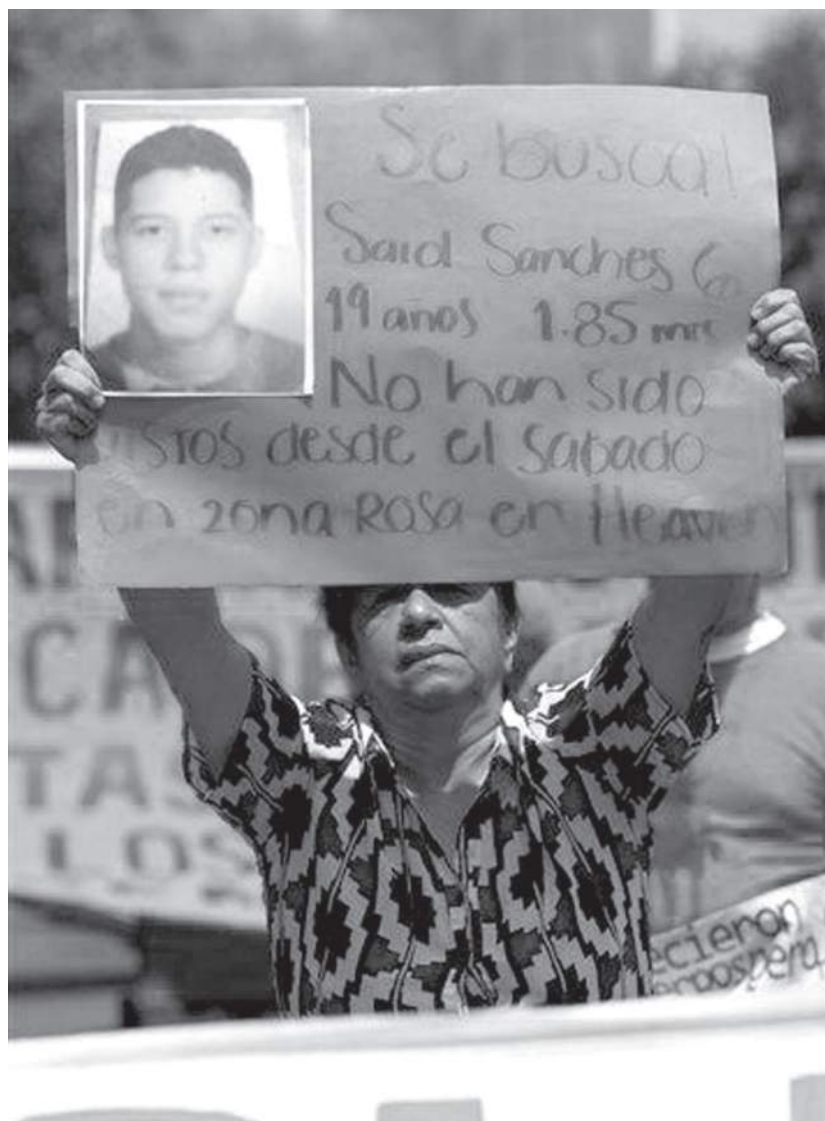 Se busca!
Said Sanches G.
19 años 1.85 mts
No han sido
vistos desde el sabado
en zona Rosa en Heaven
CA DE
TAS
LOS
ecieron